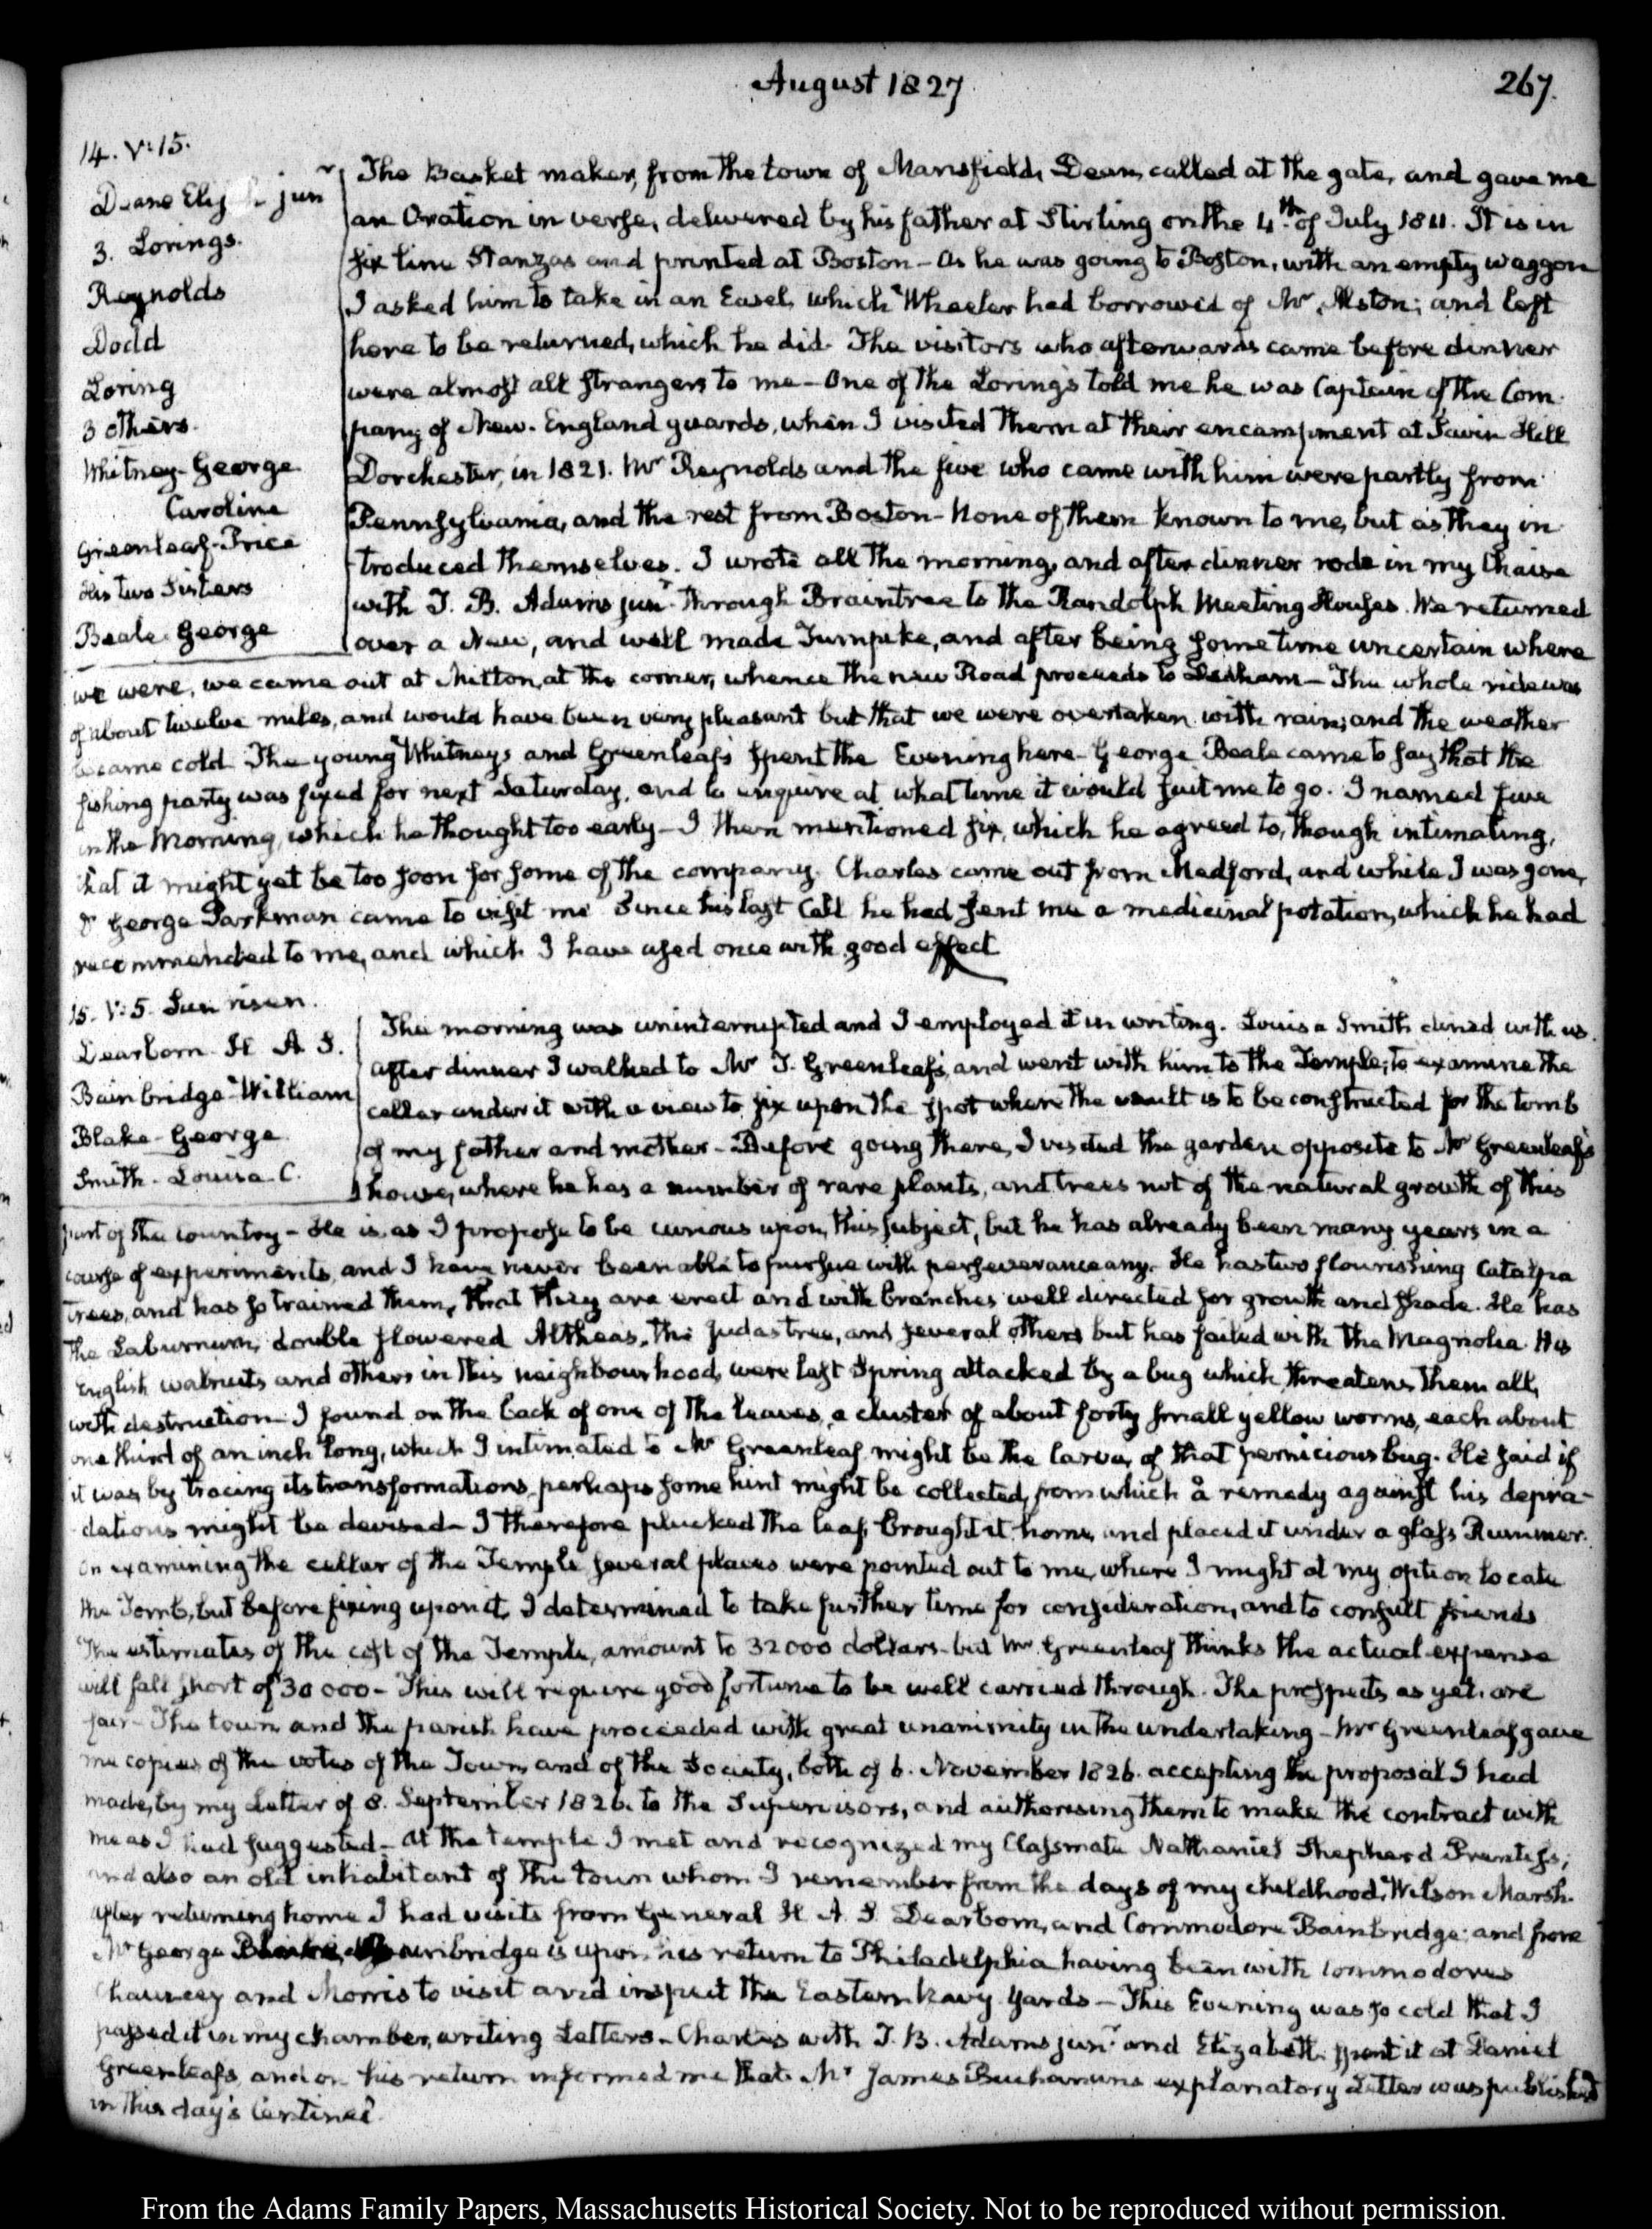 August 1827
267.
14. V:15.
Deane Elij h junr
3. Lorings.
Reynolds
Dodd
Loring
3 others.
Whitney-George
Caroline
Greenleaf-Price
His two Sisters
Beale George
The Basket maker, from the town of Mansfield, Dean, called at the gate, and gave me
an Oration in verse, delivered by his father at Stirling on the 4th. of July 1811. It is in
six line Stanzas and printed at Boston - As he was going to Boston, with an empty waggon
I asked him to take in an Easel, which Wheeler had borrowed of Mr. Alston; and left
here to be returned, which he did. The visitors who afterwards came before dinner
were almost all strangers to me - One of the Loring's told me he was Captain of the Com-
pany of New-England guards, when I visited them at their encampment at Savin Hill
Dorchester, in 1821. Mr Reynolds and the five who came with him were partly from
Pennsylvania, and the rest from Boston - None of them known to me, but as they in-
troduced themselves. I wrote all the morning, and after dinner rode in my Chaise
with J. B. Adams junr. through Braintree to the Randolph Meeting Houses. We returned
over a New, and well made Turnpike, and after being some time uncertain where
we were, we came out at Milton, at the corner, whence the new Road proceeds to Dedham - The whole ride was
of about twelve miles, and would have been very pleasant but that we were overtaken with rain; and the weather
became cold. The young Whitneys and Greenleafs spent the Evening here - George Beale came to say that the
fishing party was fixed for next Saturday, and to enquire at what time it would suit me to go. I named five
in the Morning, which he thought too early - I then mentioned six, which he agreed to, though intimating,
that it might yet be too soon for some of the company. Charles came out from Medford, and while I was gone,
Dr George Parkman came to visit me. Since his last Call he had sent me a medicinal potation, which he had
recommended to me, and which I have used once with good effect
15. V:5. Sun risen.
Dearborn H A S.
Bainbridge William
Blake-George
Smith-Louisa C.
The morning was uninterrupted and I employed it in writing. Louisa Smith dined with us.
after dinner I walked to Mr. T. Greenleaf's, and went with him to the Temple; to examine the
cellar under it with a view to fix upon the spot where the vault is to be constructed for the tomb
of my father and mother - Before going there, I visited the garden opposite to Mr Greenleaf's
house, where he has a number of rare plants, and trees not of the natural growth of this
part of the country - He is as I propose to be curious upon this subject, but he has already been many years in a
course of experiments, and I have never been able to pursue with perseverance any. He has two flourishing Catalpa
trees, and has so trained them, that they are erect and with branches well directed for growth and shade. He has
the Laburnum, double flowered Altheas, the Judas tree, and several others but has failed with the Magnolia. His
English walnuts and others in this neighbourhood, were last Spring attacked by a bug which threatens them all,
with destruction - I found on the back of one of the leaves, a cluster of about forty small yellow worms, each about
one third of an inch long, which I intimated to Mr Greenleaf might be the larva, of that pernicious bug. He said if
it was by tracing its transformations, perhaps some hint might be collected, from which a remedy against his depra-
dations might be devised - I therefore plucked the leaf, brought it home, and placed it under a glass Rummer.
On examining the cellar of the Temple several places were pointed out to me, where I might at my option locate
the Tomb, but before fixing upon it, I determined to take further time for consideration, and to consult friends
The estimates of the cost of the Temple, amount to 32000 dollars - but Mr Greenleaf thinks the actual expense
will fall short of 30000 - This will require good fortune to be well carried through. The prospects as yet are
fair - The town and the parish have proceeded with great unanimity in the undertaking - Mr Greenleaf gave
me copies of the votes of the Town, and of the Society, both of 6. November 1826. accepting the proposal I had
made, by my Letter of 8. September 1826. to the Supervisors, and authorising them to make the contract with
me as I had suggested - At the temple I met and recognized my Classmate Nathaniel Shepherd Prentiss;
and also an old inhabitant of the town whom I remember from the days of my childhood, Wilson Marsh.
After returning home I had visits from General H. A. S. Dearborn, and Commodore Bainbridge; and from
Mr George Blake, Bainbridge is upon his return to Philadelphia having been with Commodores
Chauncey and Morris to visit and inspect the Eastern Navy Yards - This Evening was so cold that I
passed it in my chamber, writing Letters - Charles with J. B. Adams junr. and Elizabeth spent it at Daniel
Greenleaf's, and on his return informed me that Mr James Buchanan's explanatory Letter was published
in this day's Centinel.
From the Adams Family Papers, Massachusetts Historical Society. Not to be reproduced without permission.